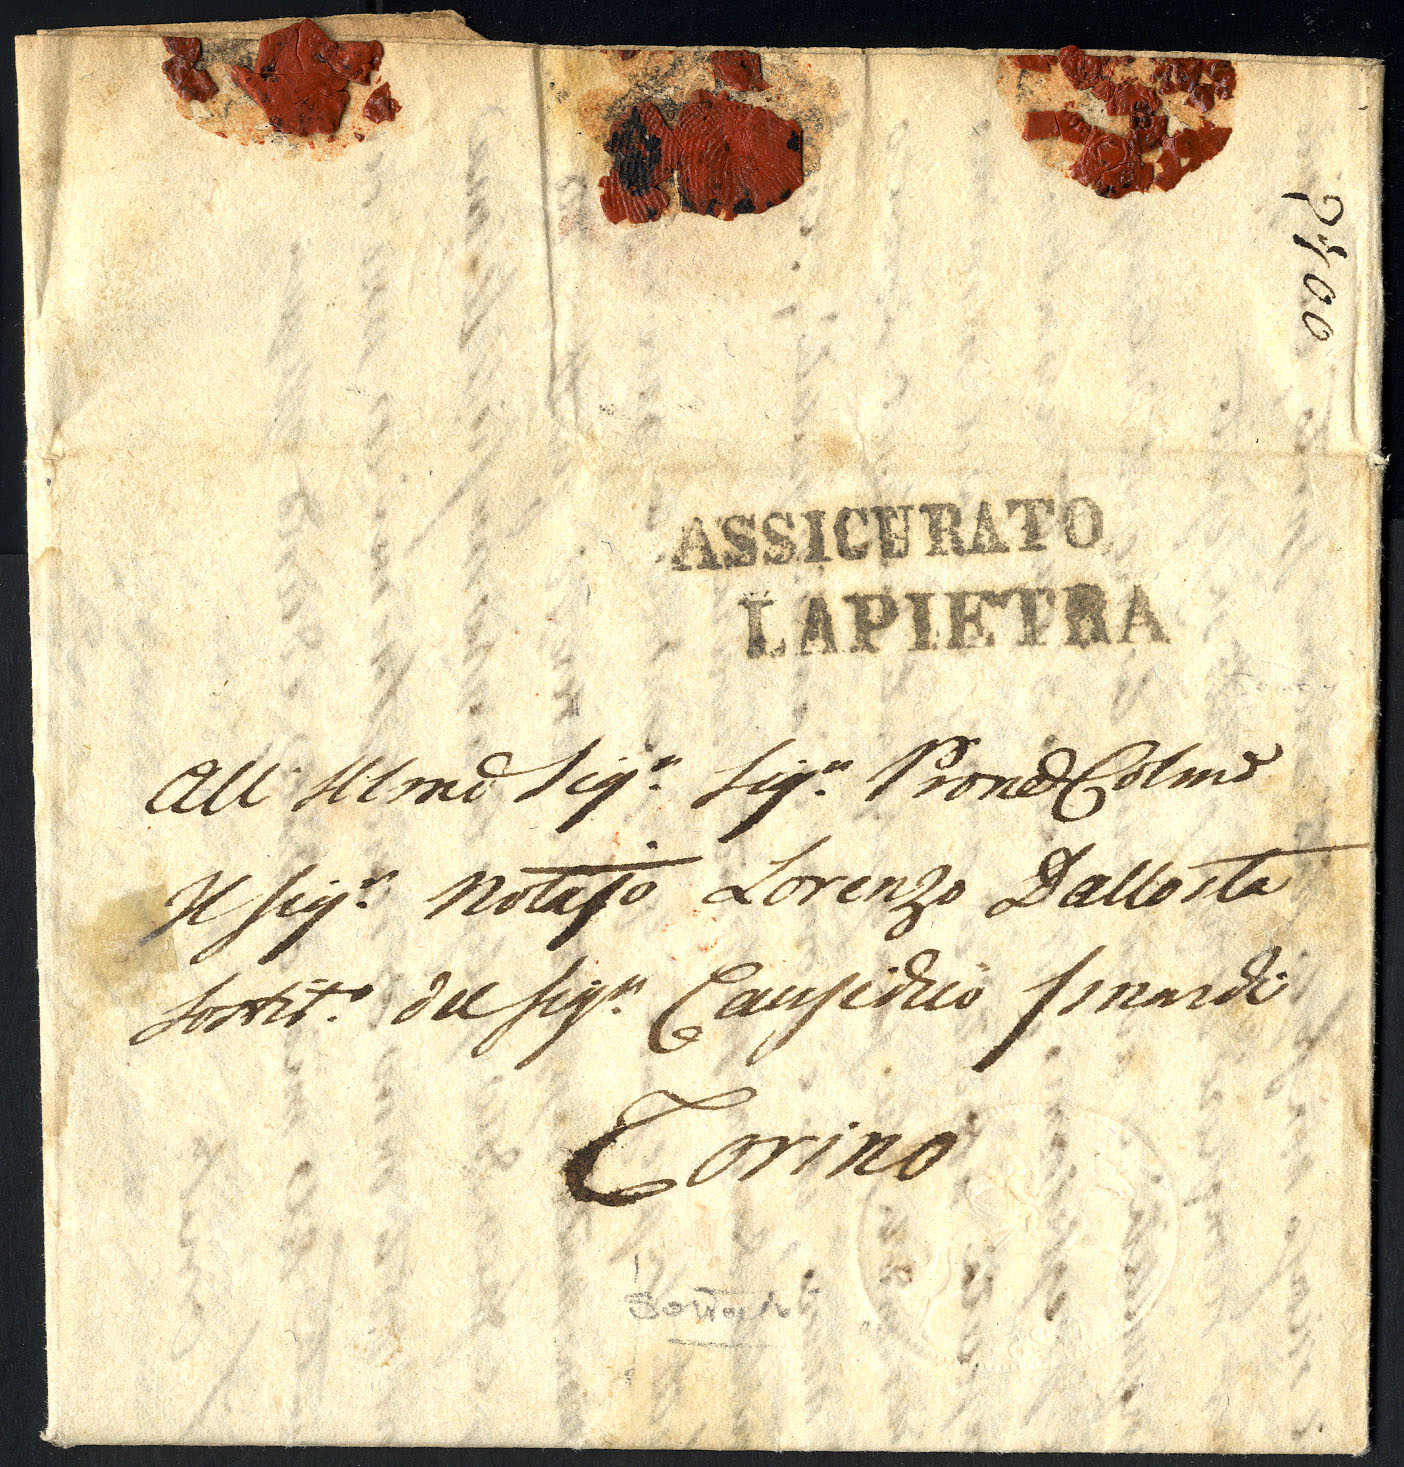 2400
ASSICURATO
LAPIETRA
All Illmo Sigr. Sigr. Prone Colmo
Il Sigr. Notajo Lorenzo Dallosta
Sostit.o del Sigr. Causidico
Torino